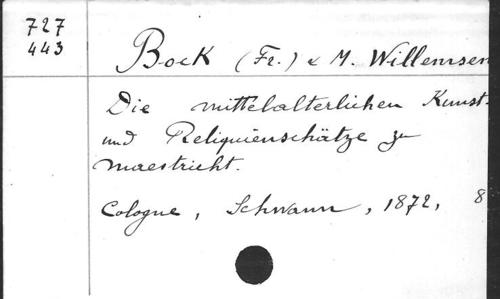 727
443
Bock (Fr.) & M. Willemsen
Die mittelalterlichen Kunst-
und Reliquienschätze zu
maestricht.
Cologne, Schwann, 1872, 8